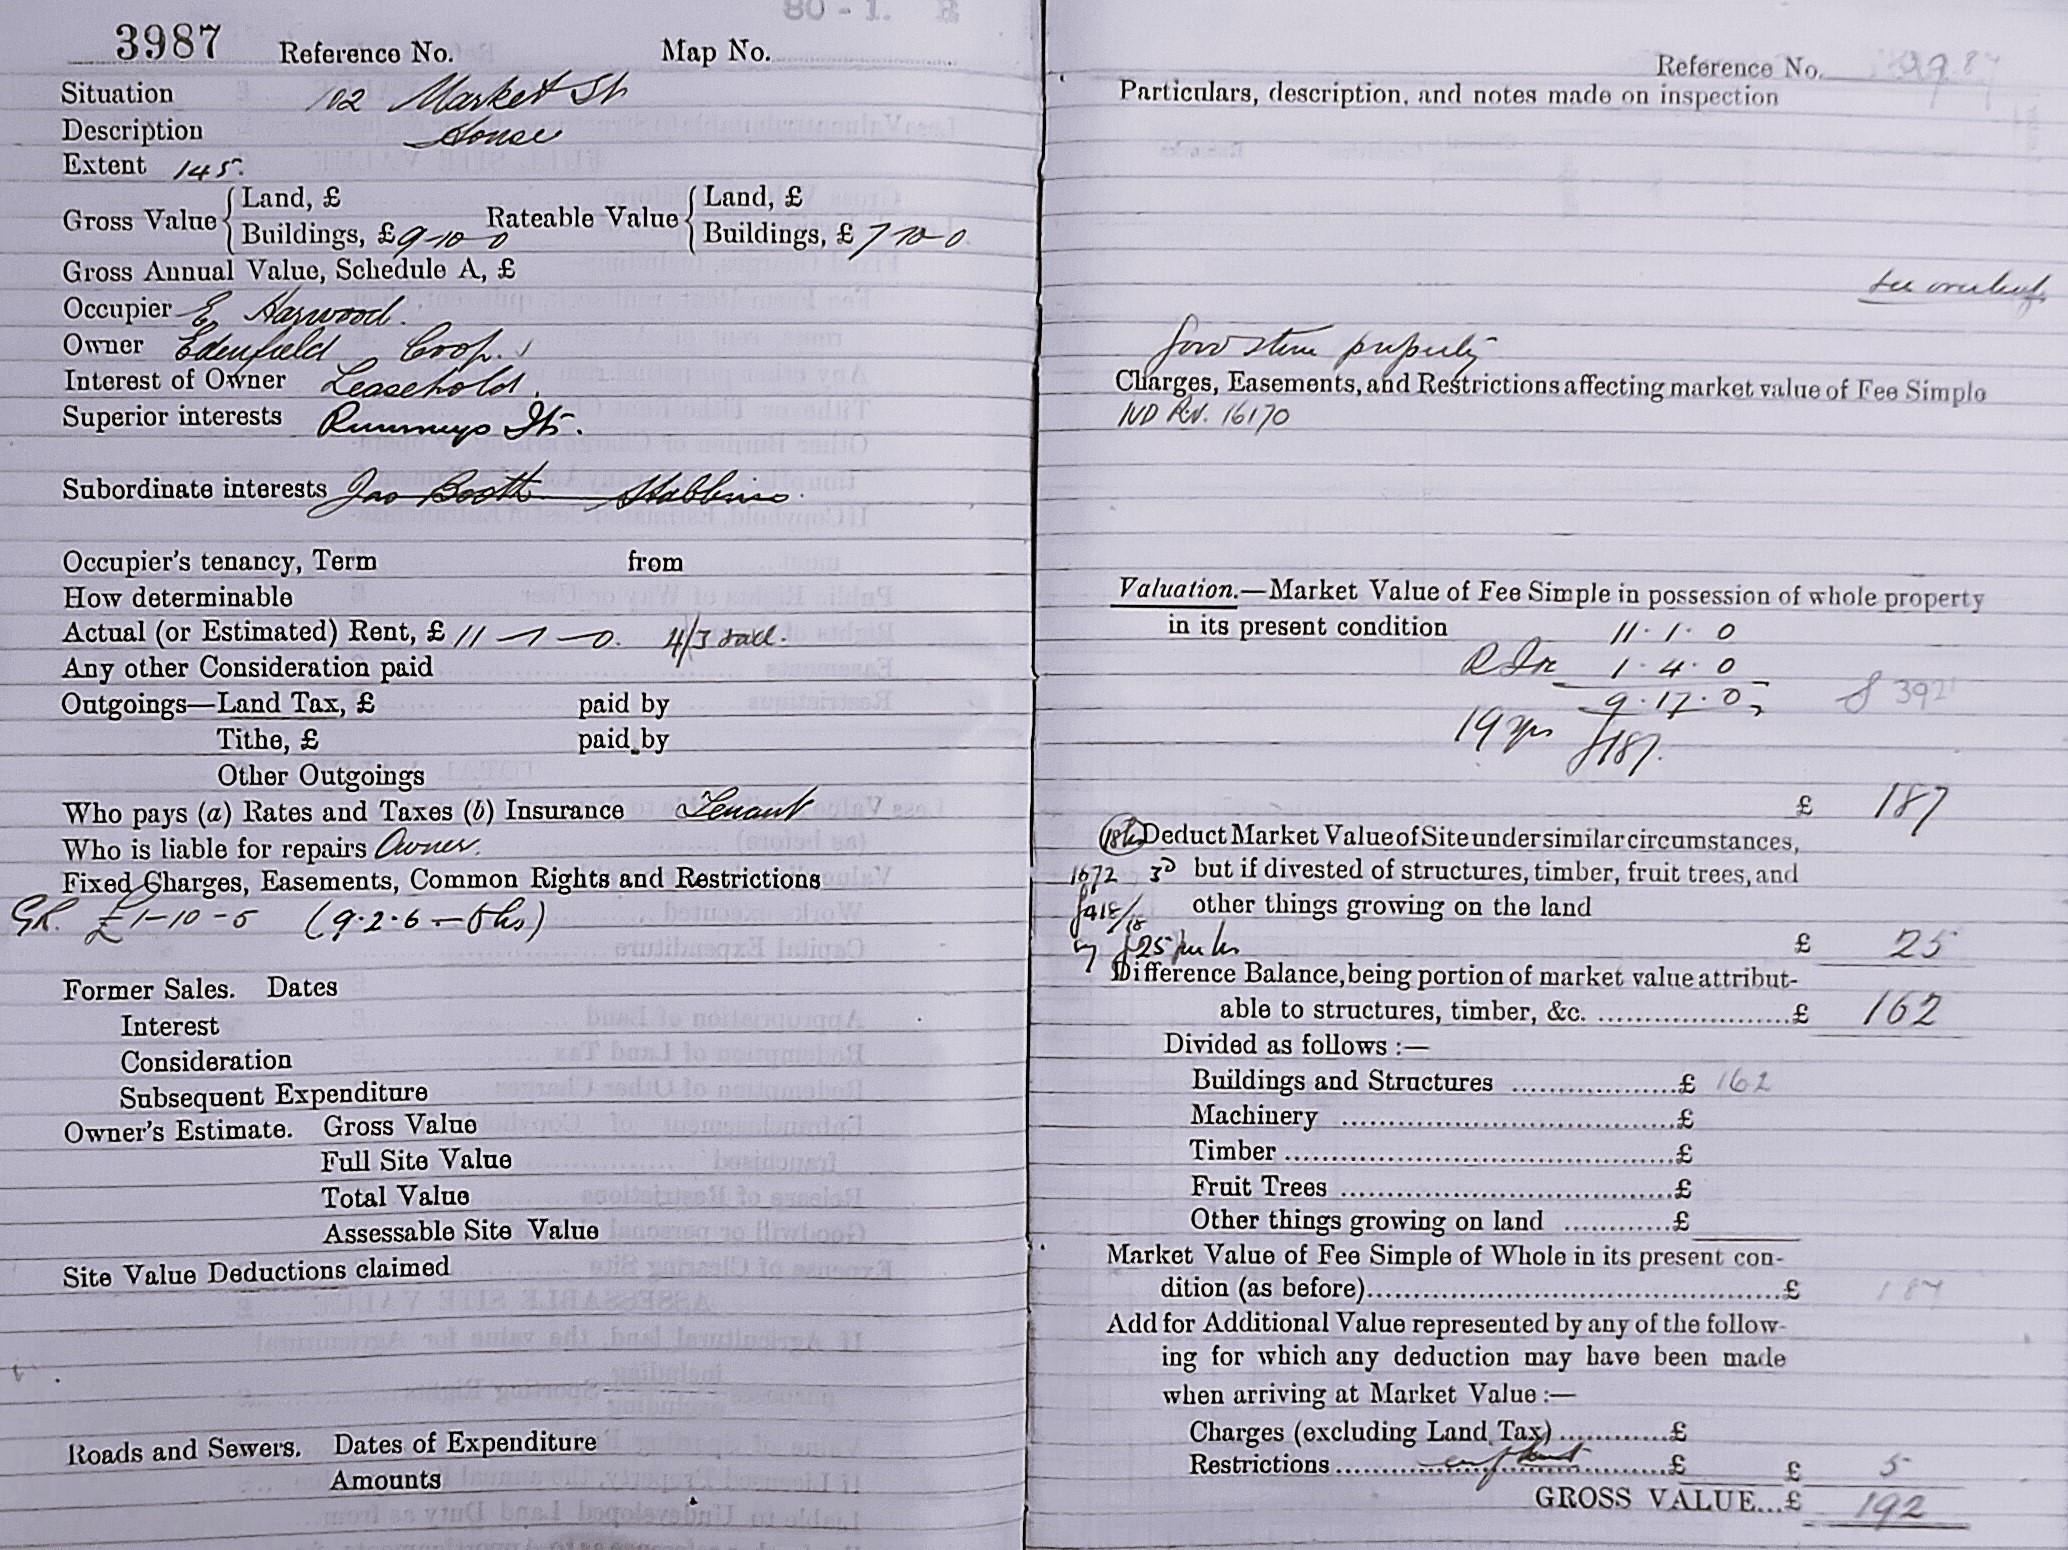 3987 Reference No. Map No.
Situation 102 Market St
Description House
Extent 145.
Gross Value { Land, £ Rateable Value { Land, £
Buildings, £ 9-10-0 Buildings, £ 7-10-0
Gross Annual Value, Schedule A, £
Occupier E. Harwood.
Owner Edenfield Coop.
Interest of Owner Leasehold.
Superior interests
Subordinate interests Jas Booth Stubbins.
Occupier's tenancy, Term from
How determinable
Actual (or Estimated) Rent, £ 11-1-0. 4/3
Any other Consideration paid
Outgoings—Land Tax, £ paid by
Tithe, £ paid by
Other Outgoings
Who pays (a) Rates and Taxes (b) Insurance Tenant
Who is liable for repairs Owner.
Fixed Charges, Easements, Common Rights and Restrictions
GR. £1-10-5 (9.2.6 - 6 hs)
Former Sales. Dates
Interest
Consideration
Subsequent Expenditure
Owner's Estimate. Gross Value
Full Site Value
Total Value
Assessable Site Value
Site Value Deductions claimed
Roads and Sewers. Dates of Expenditure
Amounts
Reference No. 3987
Particulars, description, and notes made on inspection
see overleaf
stone property
Charges, Easements, and Restrictions affecting market value of Fee Simple
IVD Rv. 16170
Valuation.—Market Value of Fee Simple in possession of whole property
in its present condition 11.1.0
1.4.0
9.17.0 £392
19 yrs £187.
£ 187
Deduct Market Value of Site under similar circumstances,
1672 but if divested of structures, timber, fruit trees, and
other things growing on the land
£25 per hs £ 25
Difference Balance, being portion of market value attribut-
able to structures, timber, &c. £ 162
Divided as follows :—
Buildings and Structures £ 162
Machinery £
Timber £
Fruit Trees £
Other things growing on land £
Market Value of Fee Simple of Whole in its present con-
dition (as before) £ 187
Add for Additional Value represented by any of the follow-
ing for which any deduction may have been made
when arriving at Market Value :—
Charges (excluding Land Tax) £
Restrictions £ £ 5
GROSS VALUE...£ 192